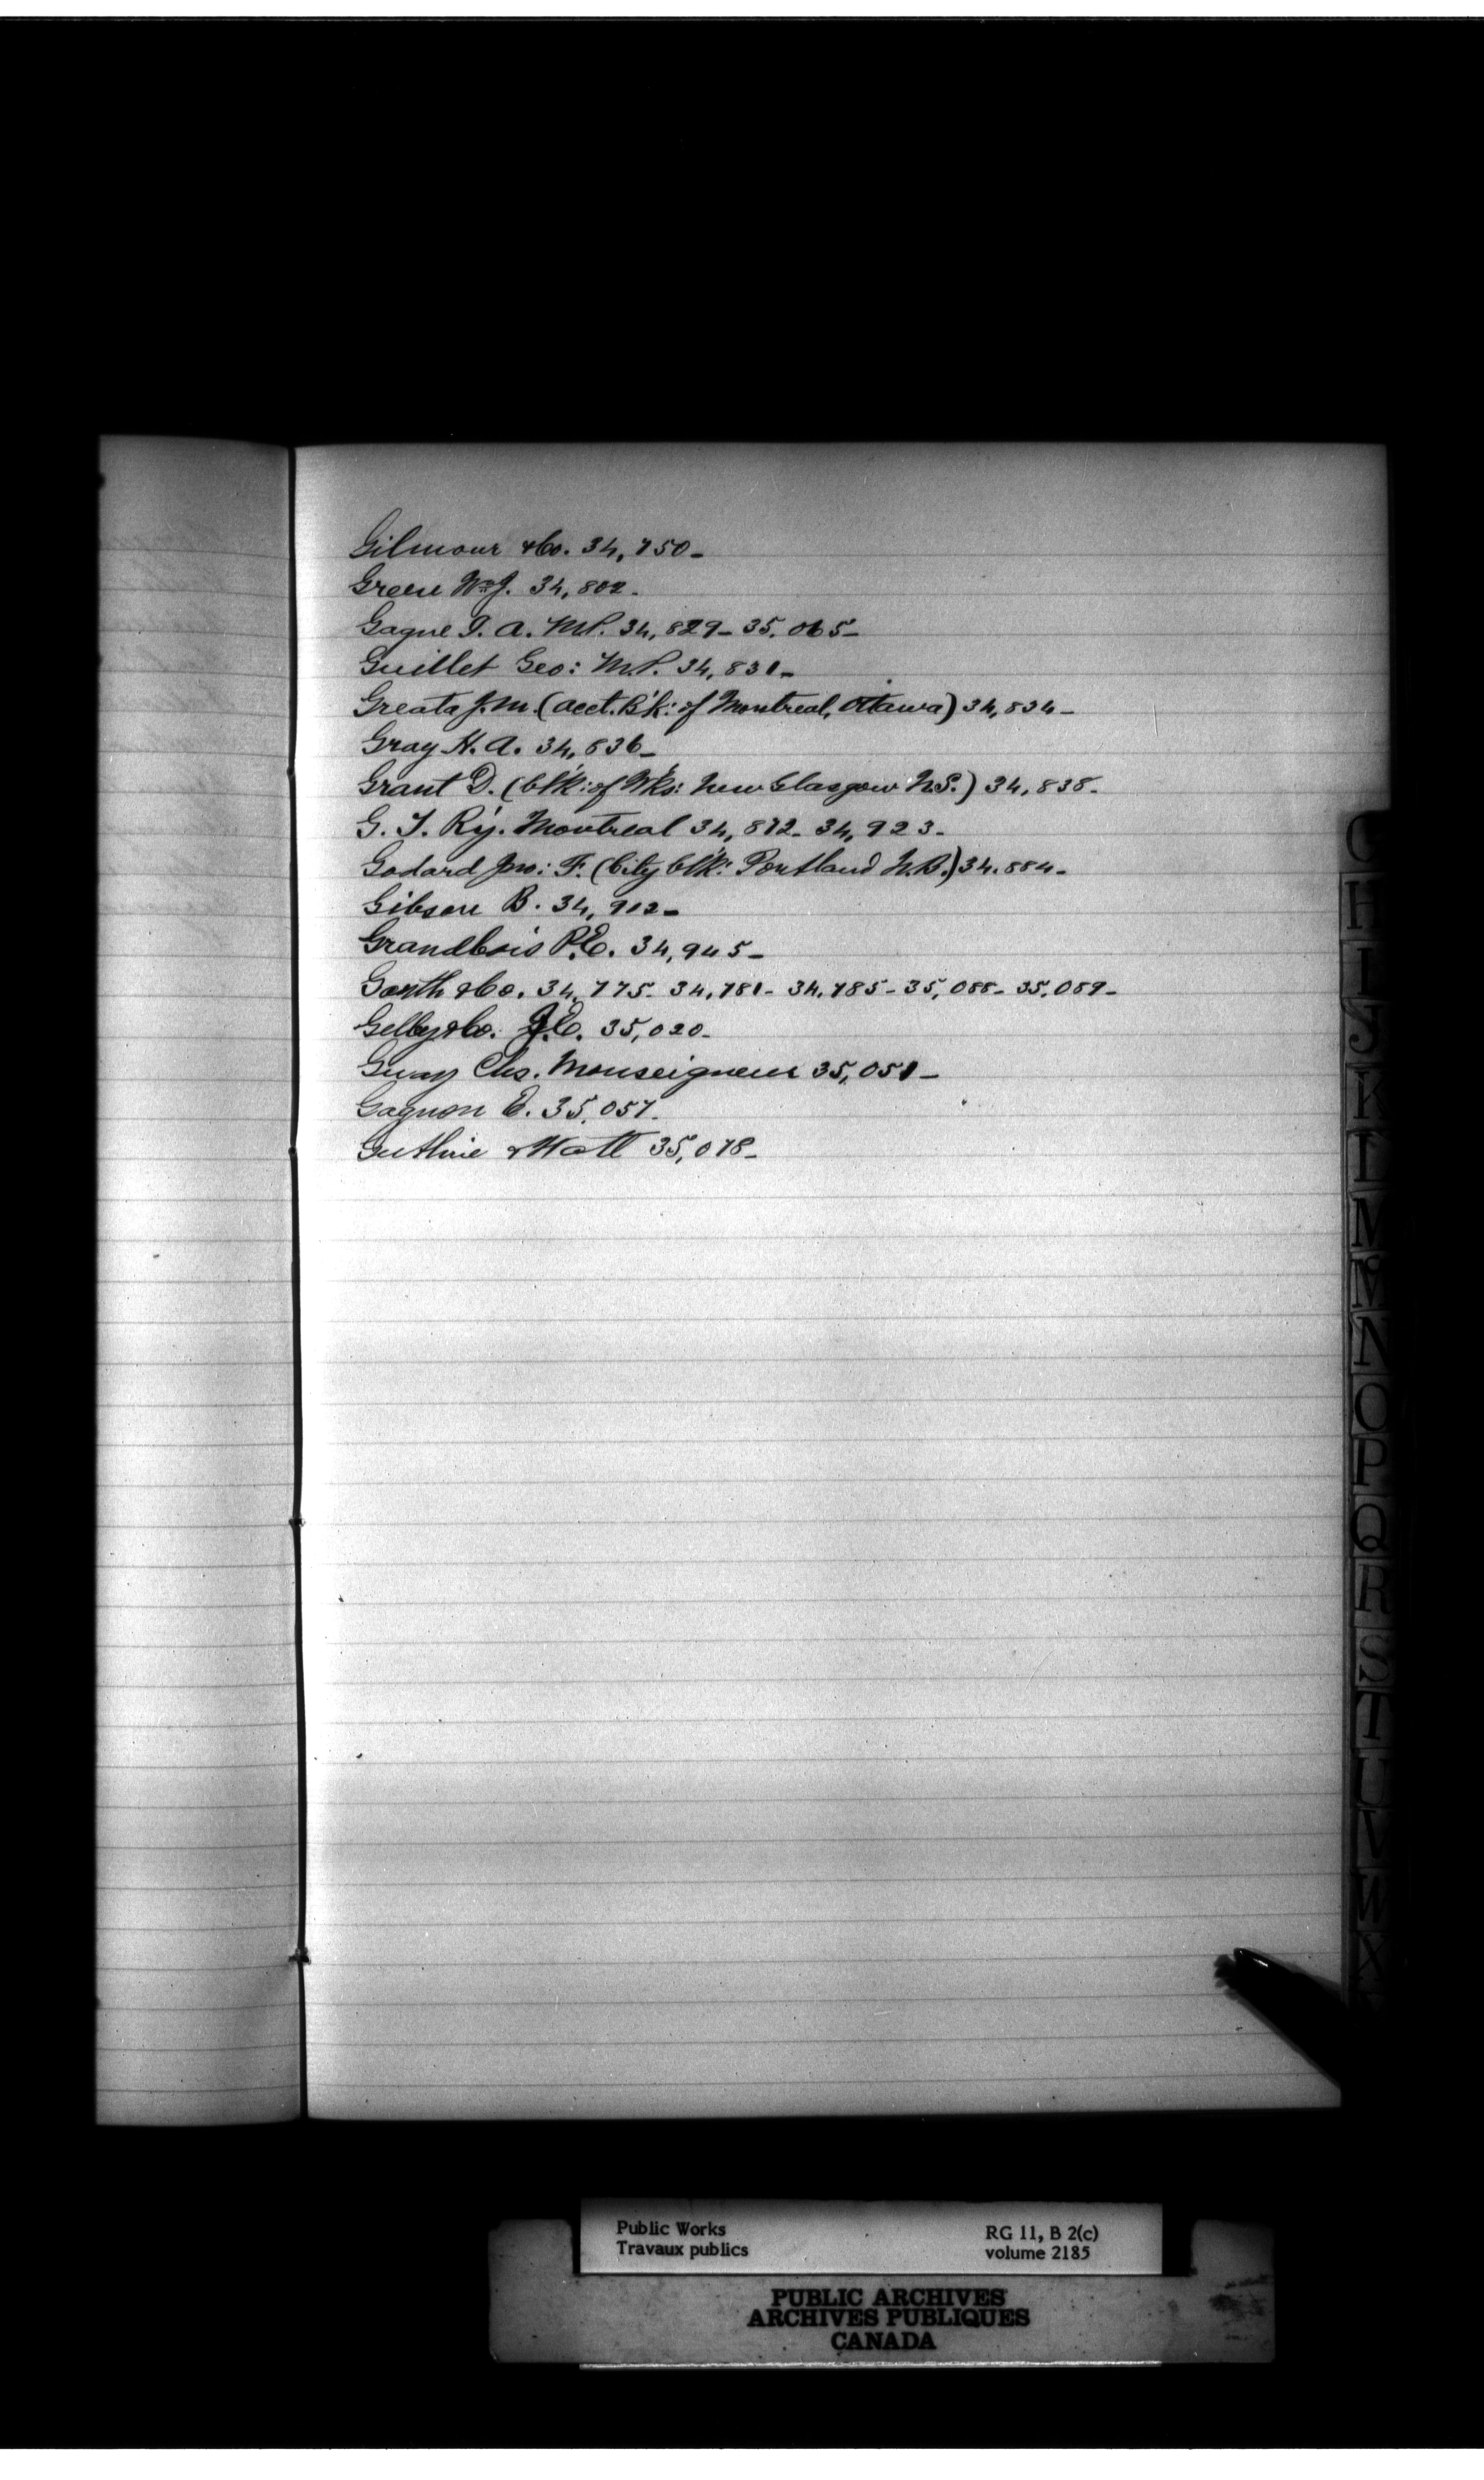 Gilmour & Co. 34,750-
Greene Wm J. 34,802-
Gagne J. A. M.P. 34,829- 35,065-
Guillet Geo: M.P. 34,831-
Greata J. M. (acct. B'k: of Montreal, Ottawa) 34,834-
Gray H. A. 34,836-
Grant D. (Cl'k: of W'ks: New Glasgow N.S.) 34,838-
G. T. R'y. Montreal 34,872- 34,923-
Godard Jno: F. (City Cl'k: Portland N.B.) 34,884-
Gibson B. 34,902-
Grandbois P. E. 34,945-
Garth & Co. 34,775- 34,781- 34,785- 35,088- 35,089-
& Co. J. E. 35,020-
Guay Chs. Monseigneur 35,051-
Gagnon E. 35,057-
Guthrie & Watt 35,078-
G
H
I
J
K
L
M
Mc
N
O
P
Q
R
S
T
U
V
W
X
Public Works
Travaux publics
RG 11, B 2(c)
volume 2185
PUBLIC ARCHIVES
ARCHIVES PUBLIQUES
CANADA